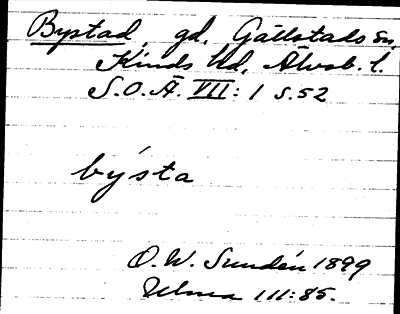 Bystad, gd, Gällstads sn,
Kinds hd, Älvsb. l.
S.O.Ä. VII: 1 s.52
býsta
O.W. Sundén 1899
Ulma 111:85.